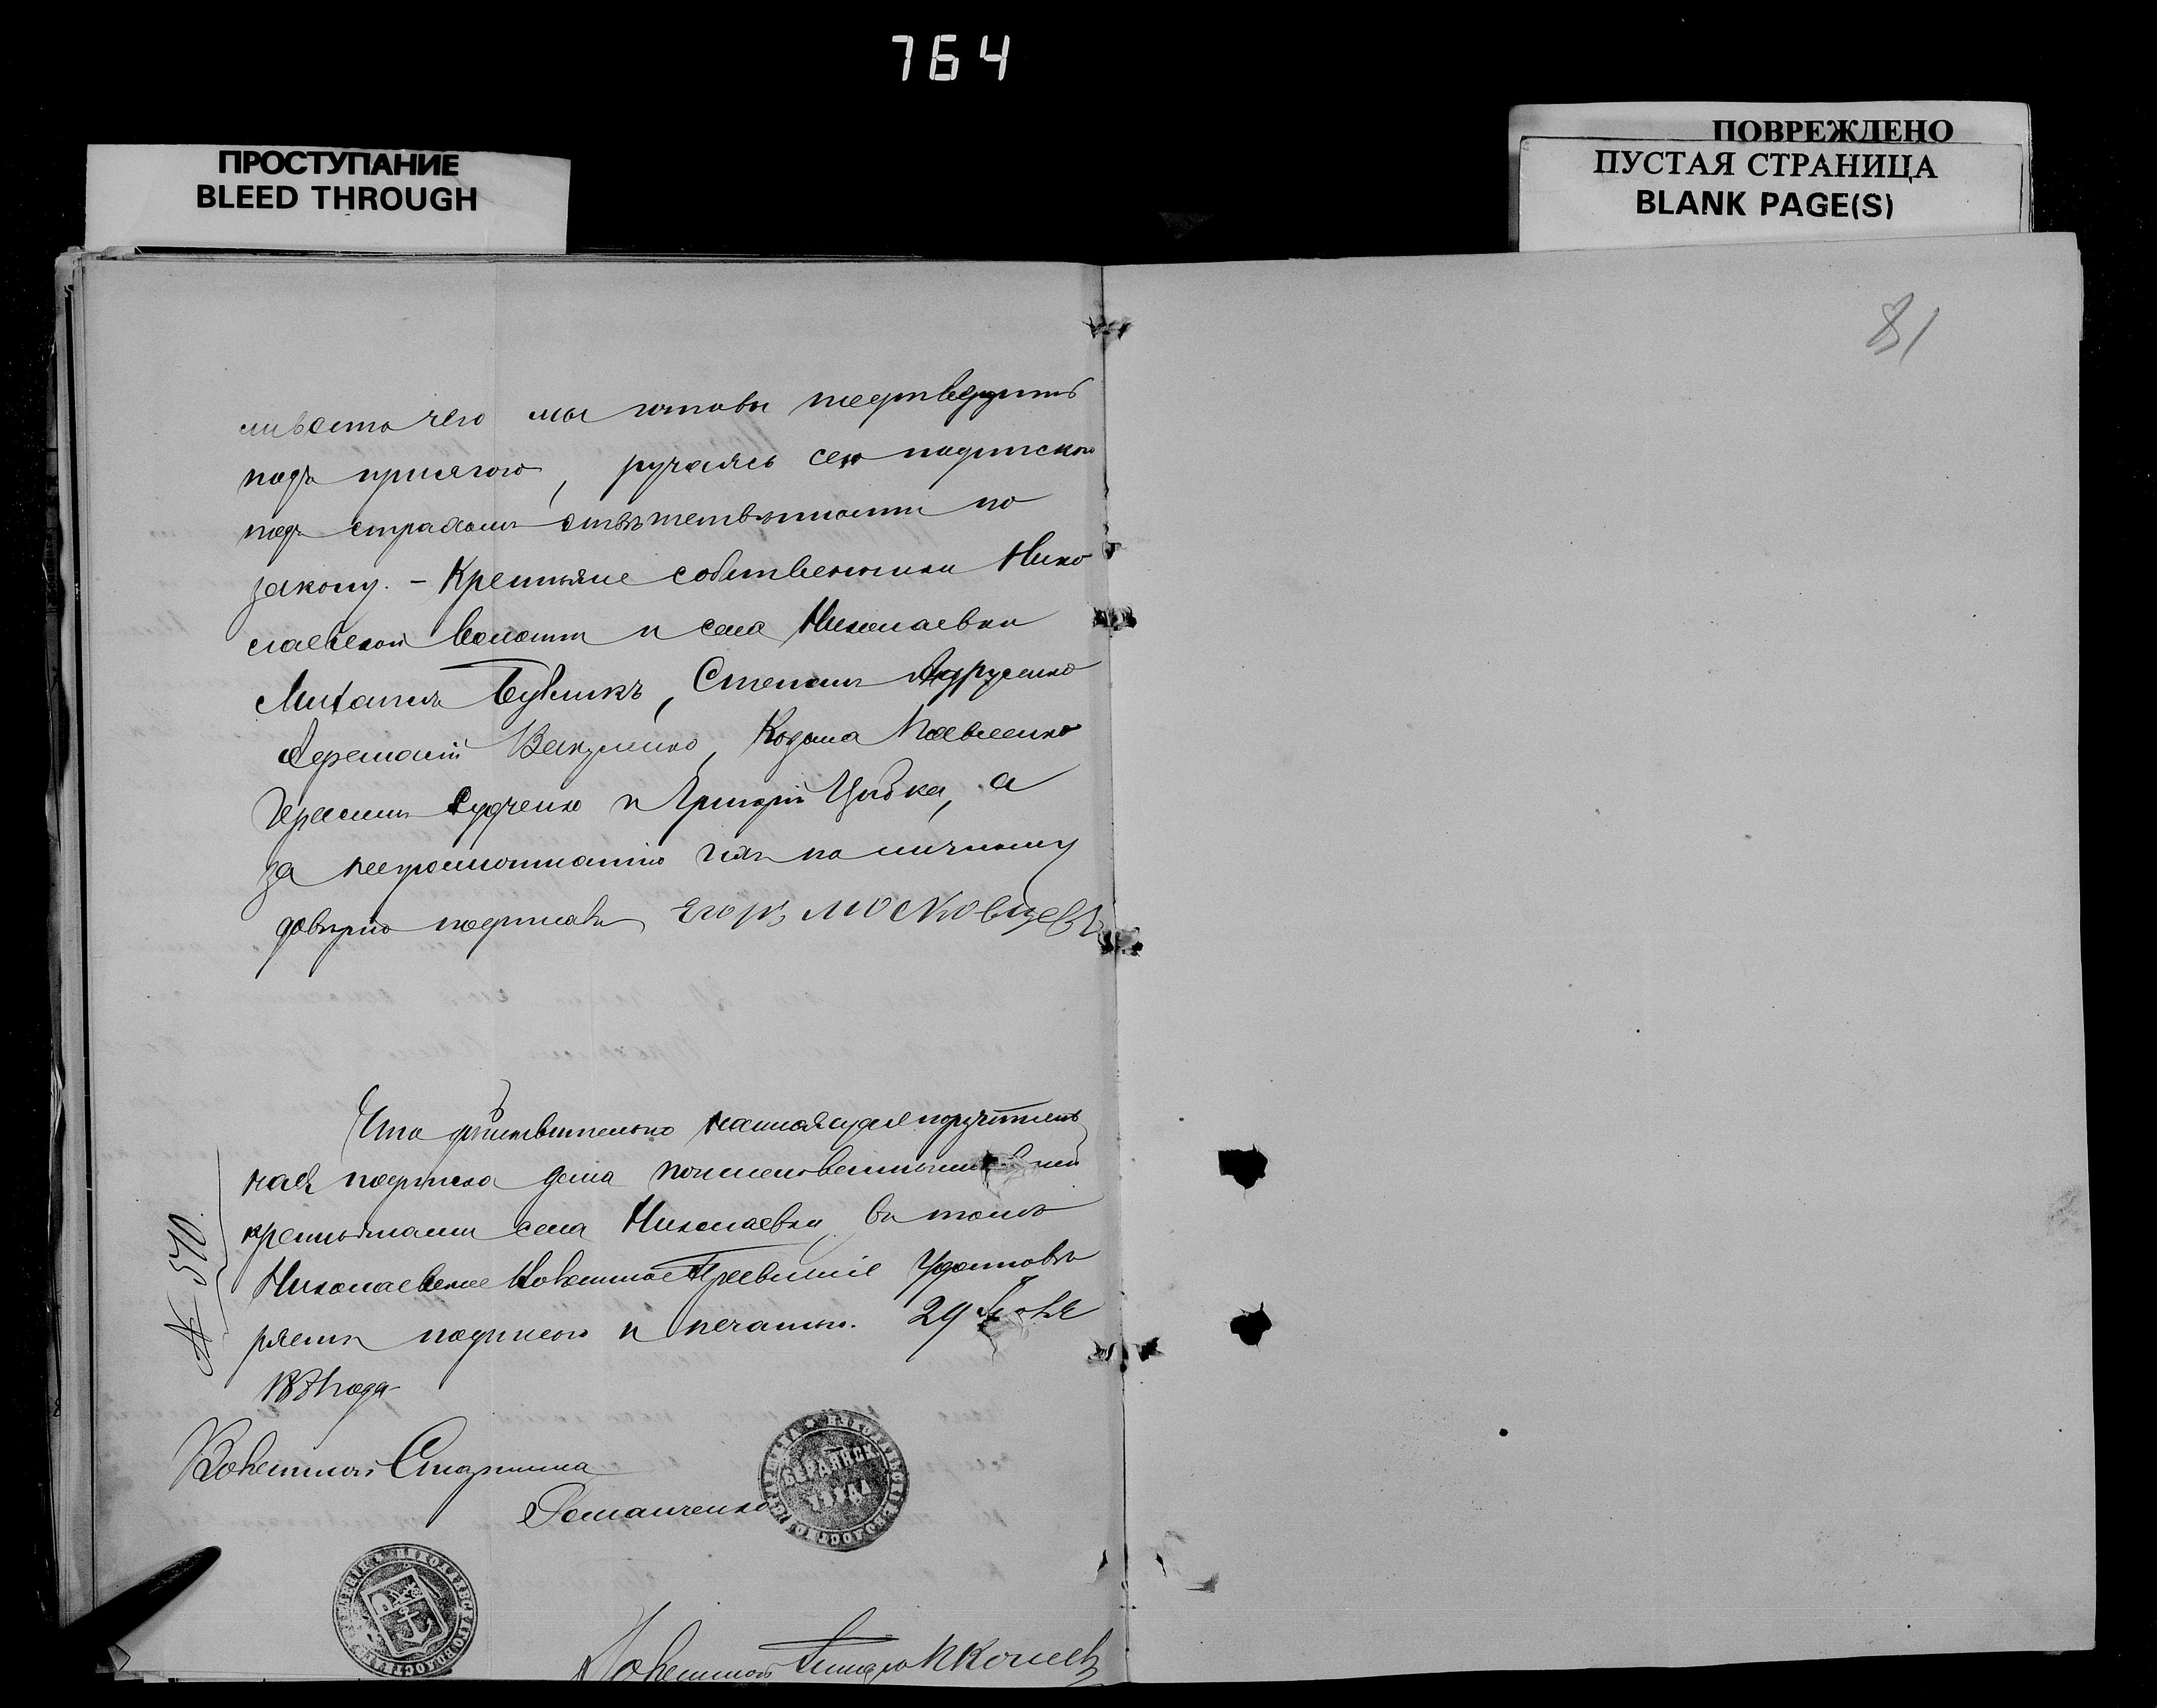 764
ПРОСТУПАНИЕ
BLEED THROUGH
ПОВРЕЖДЕНО
ПУСТАЯ СТРАНИЦА
BLANK PAGE(S)
81
чего мы готовы подтвердить
подъ присягою, ручаясь сею подпискою
подъ страхомъ ответственности по
закону. - Крестьяне собственники Нико
лаевской волости и села Николаевки
Михаилъ Бубликъ, Степанъ Андрусенко
Вакуленко, Козьма Павленко
Герасимъ Дудченко и Григорій Цыбка, а
за неграмотностію ихъ по личному
довѣрію подписалъ Егоръ Московцевъ
Что дѣйствительно настоящая поручитель
ная подписка дана поименованными в ней
крестьянами села Николаевки, въ томъ
Николаевское Волостное Правленіе Удостовѣ
ряетъ подписью и печатью. 29
года
№ 510.
Волостной Старшина
Романченко
БЕРДЯНСК
УѢЗДА
Волостной Писарь